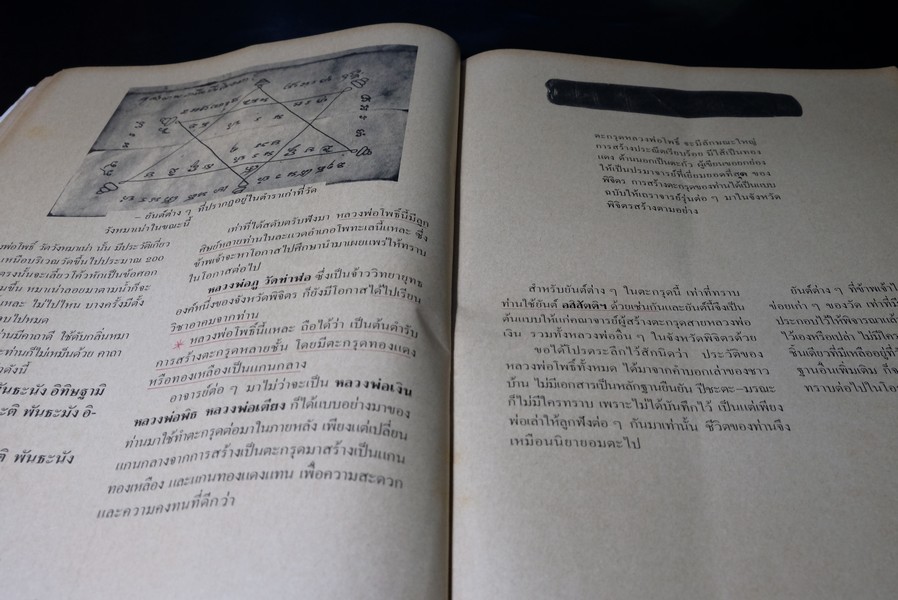 - ยันต์ต่าง ๆ ที่ปรากฏอยู่ในตำราเก่าที่วัด
วังหมาเน่าในขณะนี้
พ่อโพธิ์ วัดวังหมาเน่า นั้น มีประวัติเกี่ยว
เหมือนบริเวณวัดขึ้นไปประมาณ 200
ตรงนั้นจะเลี้ยวโค้วหักเป็นข้อศอก
แหละ ไม่ไปไหน บางครั้งมีตั้ง
านมีคาถาดี ใช้ดับกลิ่นหมา
ะท่านก็ไม่เหม็นด้วย คาถา
ดังนี้
ันธะนัง อิทิษฐามิ
ะติ พันธะนัง อิ-
ติ พันธะนัง
เท่าที่ได้สดับตรับฟังมา หลวงพ่อโพธิ์นี้มีลูก
ศิษย์หลายท่านในละแวกอำเภอโพทะเลนี้แหละ ซึ่ง
ข้าพเจ้าจะหาโอกาสไปศึกษานำมาเผยแพร่ให้ทราบ
ในโอกาสต่อไป
หลวงพ่อภู วัดท่าฬ่อ ซึ่งเป็นจ้าววิทยายุทธ
องค์หนึ่งของจังหวัดพิจิตร ก็ยังมีโอกาสได้ไปเรียน
วิชาอาคมจากท่าน
หลวงพ่อโพธิ์นี้แหละ ถือได้ว่า เป็นต้นตำรับ
การสร้างตะกรุดหลายชั้น โดยมีตะกรุดทองแดง
หรือทองเหลืองเป็นแกนกลาง
อาจารย์ต่อ ๆ มาไม่ว่าจะเป็น หลวงพ่อเงิน
หลวงพ่อพิธ หลวงพ่อเตียง ก็ได้แบบอย่างมาของ
ท่านมาใช้ทำตะกรุดต่อมาในภายหลัง เพียงแต่เปลี่ยน
แกนกลางจากการสร้างเป็นตะกรุดมาสร้างเป็นแกน
ทองเหลือง และแกนทองแดงแทน เพื่อความสะดวก
และความคงทนที่ดีกว่า
ตะกรุดหลวงพ่อโพธิ์ จะมีลักษณะใหญ่
การสร้างประณีตเรียบร้อย มีไส้เป็นทอง
แดง ด้านนอกเป็นตะกั่ว ผู้เขียนขอยกย่อง
ให้เป็นปรมาจารย์ที่เยี่ยมยอดที่สุด ของ
พิจิตร การสร้างตะกรุดของท่านได้เป็นแบบ
ฉบับให้เถราจารย์รุ่นต่อ ๆ มาในจังหวัด
พิจิตรสร้างตามอย่าง
สำหรับยันต์ต่าง ๆ ในตะกรุดนี้ เท่าที่ทราบ
ท่านใช้ยันต์ อสิสัตติฯ ด้วยเช่นกันและยันต์นี้จึงเป็น
ต้นแบบให้แก่คณาจารย์ผู้สร้างตะกรุดสายหลวงพ่อ
เงิน รวมทั้งหลวงพ่ออื่น ๆ ในจังหวัดพิจิตรด้วย
ขอได้โปรดระลึกไว้สักนิดว่า ประวัติของ
หลวงพ่อโพธิ์ทั้งหมด ได้มาจากคำบอกเล่าของชาว
บ้าน ไม่มีเอกสารเป็นหลักฐานยืนยัน ปีชะตะ-มรณะ
ก็ไม่มีใครทราบ เพราะไม่ได้บันทึกไว้ เป็นแต่เพียง
พ่อเล่าให้ลูกฟังต่อ ๆ กันมาเท่านั้น ชีวิตของท่านจึง
เหมือนนิยายอมตะไป
ยันต์ต่าง ๆ ที่ข้าพเจ้าได้
ข่อยเก่า ๆ ของวัด เท่าที่มี
ประกอบไว้ให้พิจารณาแล้ว
ไว้เองหรือเปล่า ไม่มีใคร
ชิ้นเดียวที่มีเหลืออยู่ที่วั
ฐานอื่นเพิ่มเติม ก็จะ
ทราบต่อไปในโอ